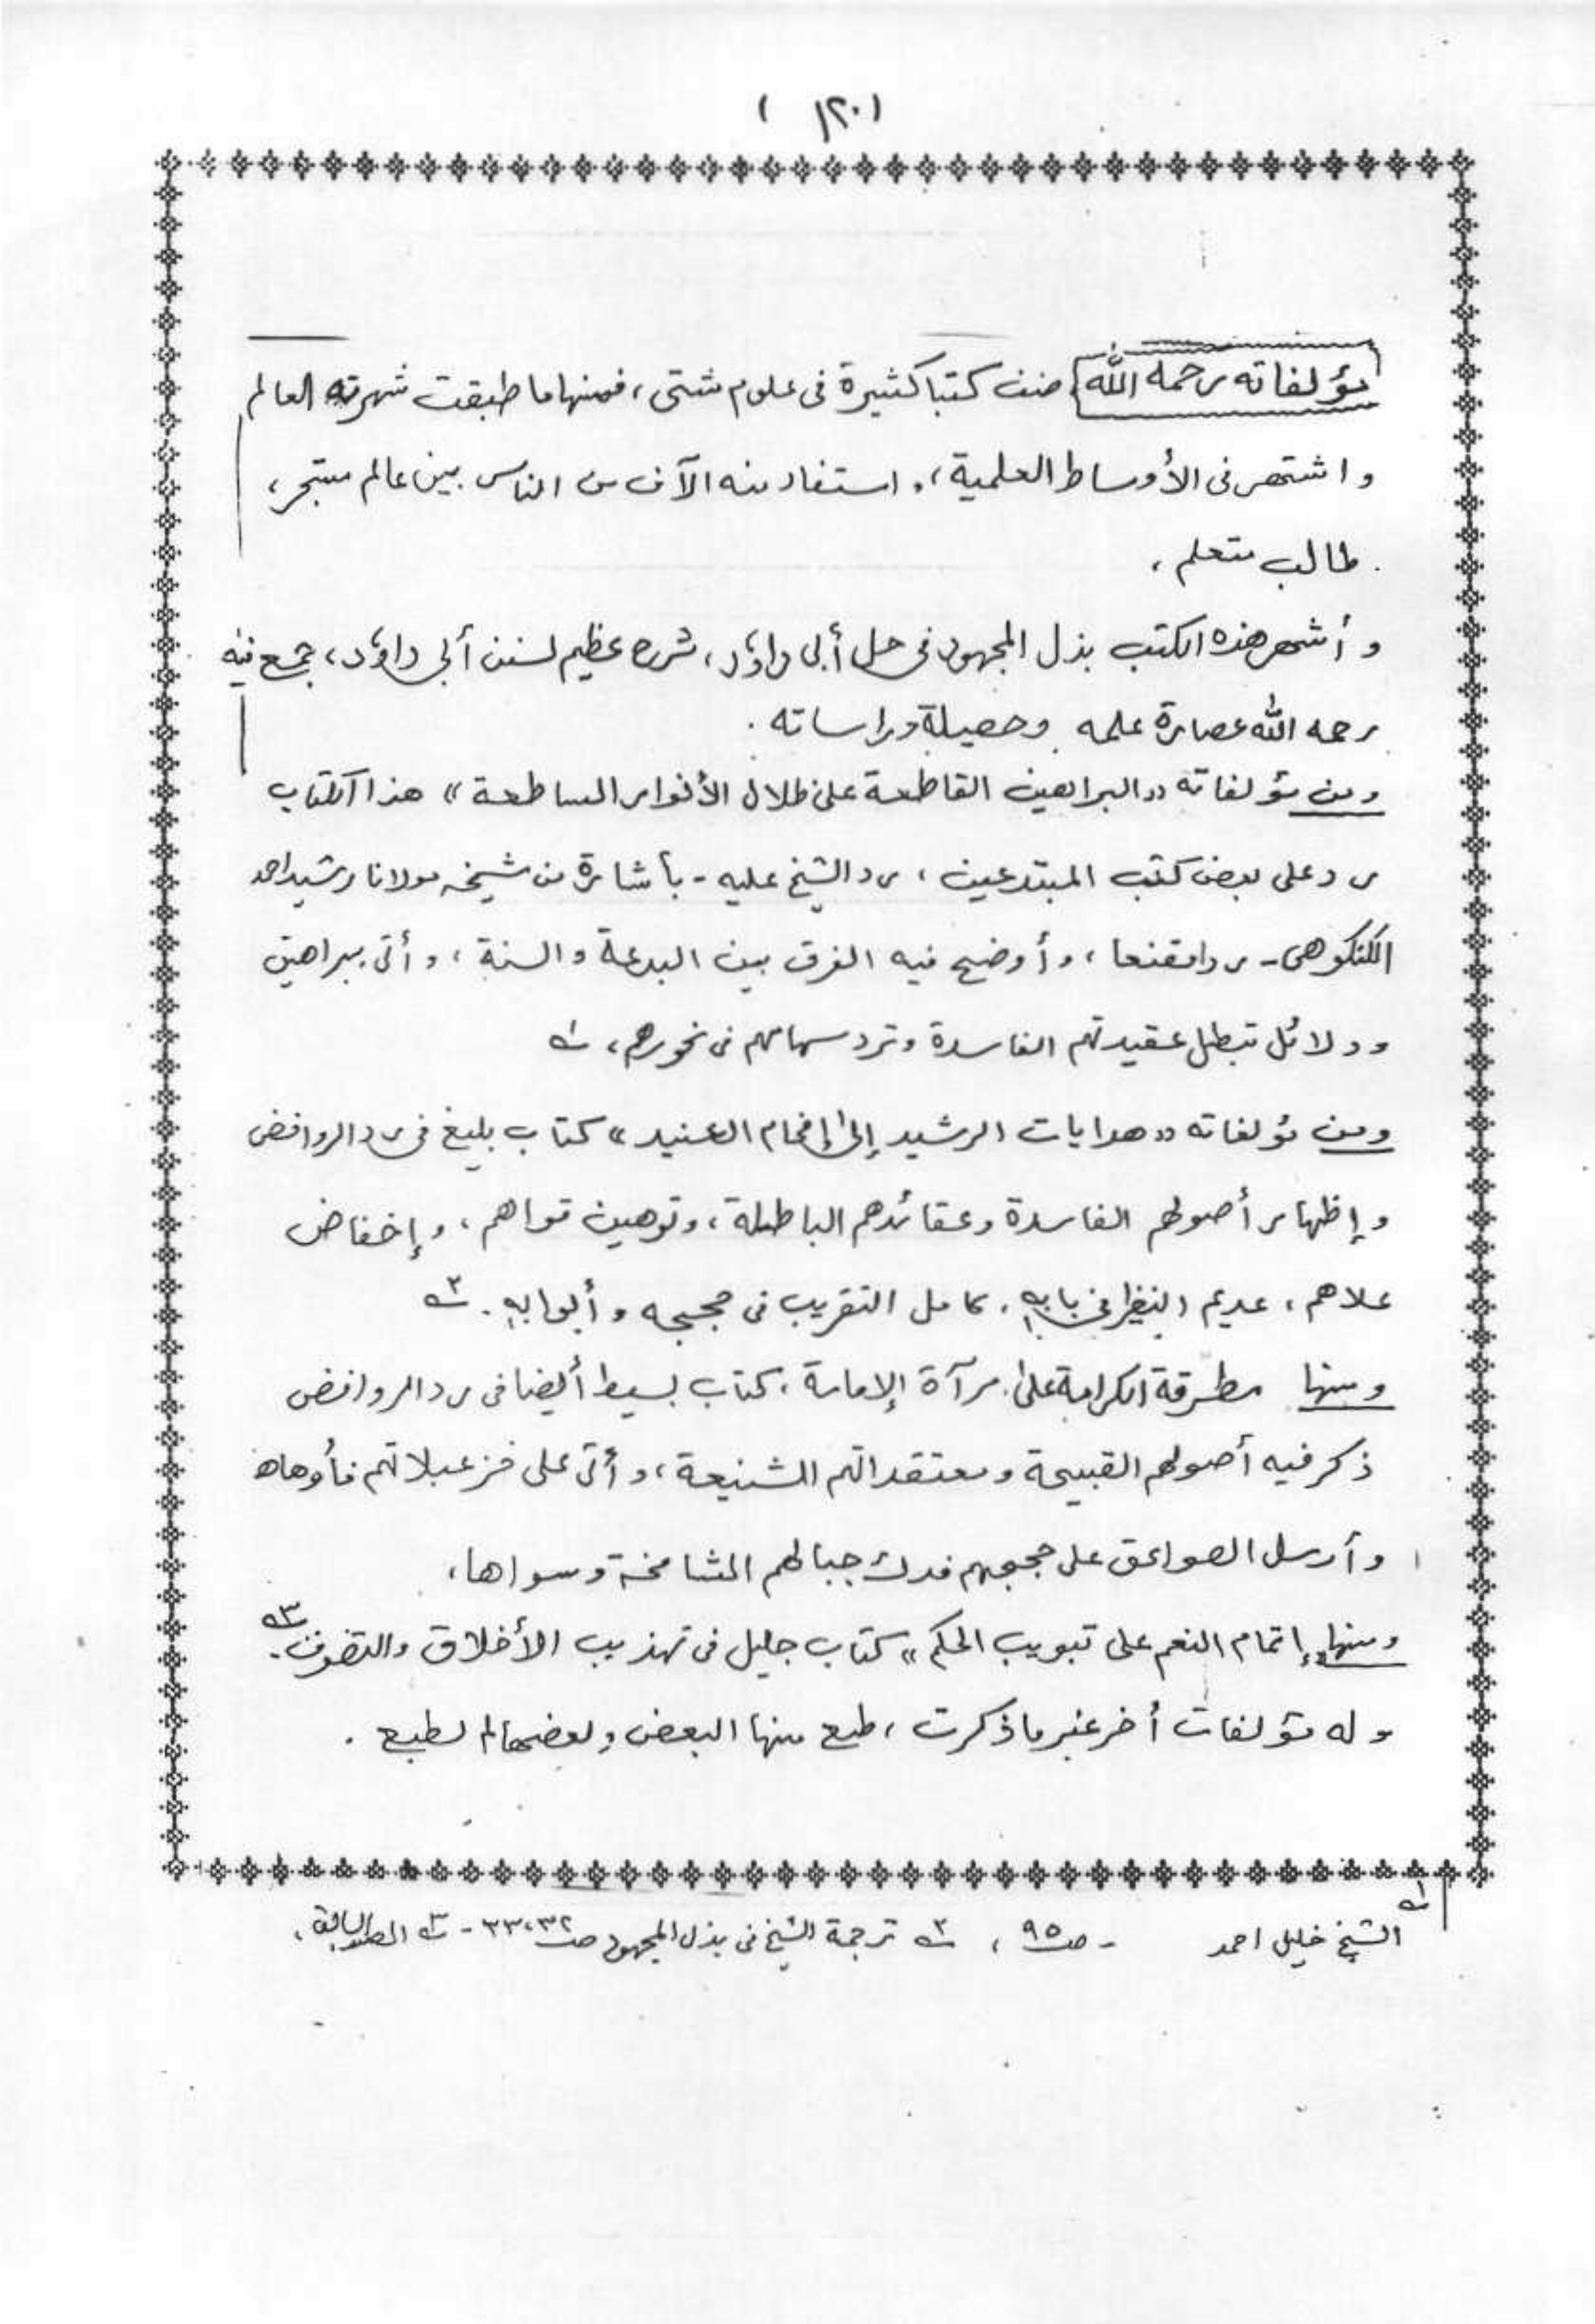 (١٢٠)
مؤلفاته رحمه الله صنف كتبا كثيرة فى علوم شتى، فمنها ما طبقت شهرته العالم
واشتهر فى الأوساط العلمية، واستفاد منه الآف من الناس بين عالم متبحر،
طالب متعلم،
وأشهر هذه الكتب بذل المجهود فى حل أبى داؤد، شرح عظيم لسنن أبى داؤد، جمع فيه
رحمه الله عصارة علمه وحصيلة دراساته.
ومن مؤلفاته «البراهين القاطعة على ظلال الأنوار الساطعة» هذا الكتاب
رد على بعض كتب المبتدعين، رد الشيخ عليه - بأشارة من شيخه مولانا رشيد احمد
الكنكوهى - ردا مقنعا، وأوضح فيه الفرق بين البدعة والسنة، وأتى ببراهين
ودلائل تبطل عقيدتهم الفاسدة وترد سهامهم فى نحورهم، ١ه
ومن مؤلفاته «هدايات الرشيد إلى إفحام العنيد» كتاب بليغ فى رد الروافض
وإظهار أصولهم الفاسدة وعقائدهم الباطلة، وتوهين قواهم، وإخفاض
علاهم، عديم النظير فى بابه، كامل التقريب فى حججه وأبوابه. ٢ه
ومنها مطرقة الكرامة على مرآة الإمامة، كتاب بسيط أيضا فى رد الروافض
ذكر فيه أصولهم القبيحة ومعتقداتهم الشنيعة، وأتى على خزعبلاتهم فأوهاها
وأرسل الصواعق على حججهم فدك جبالهم الشامخة وسواها،
ومنها «إتمام النعم على تبويب الحكم» كتاب جليل فى تهذيب الأخلاق والتصوف. ٣ه
وله مؤلفات أخر غير ما ذكرت، طبع منها البعض وبعضها لم يطبع.
١ه الشيخ خليل احمد - صـ ٩٥، ٢ه ترجمة الشيخ فى بذل المجهود صـ ٣٢،٣٣ - ٣ه المصدر السابق،